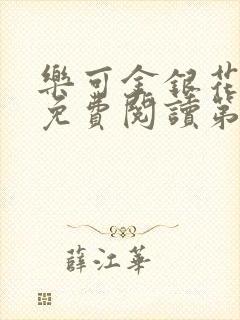 樂可金銀花
免費閱讀第
薛江華